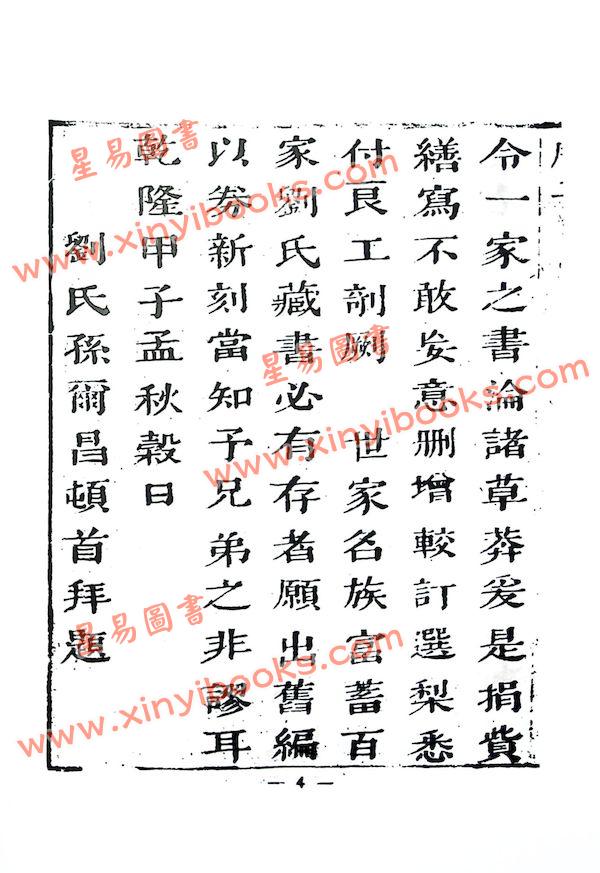 令一家之書論諸草莽爰是捐貲
繕寫不敢妄意删增較訂選梨悉
付良工剞劂 世家名族富蓄百
家劉氏藏書必有存者願出舊編
以券新刻當知予兄弟之非謬耳
乾隆甲子孟秋穀日
劉氏孫爾昌頓首拜題
— 4 —
星易圖書
www.xinyibooks.com
星易圖書
www.xinyibooks.com
星易圖書
www.xinyibooks.com